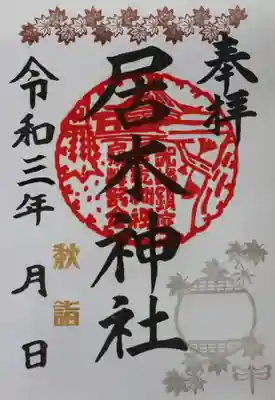 奉拝
居木神社
令和三年 月 日
秋詣